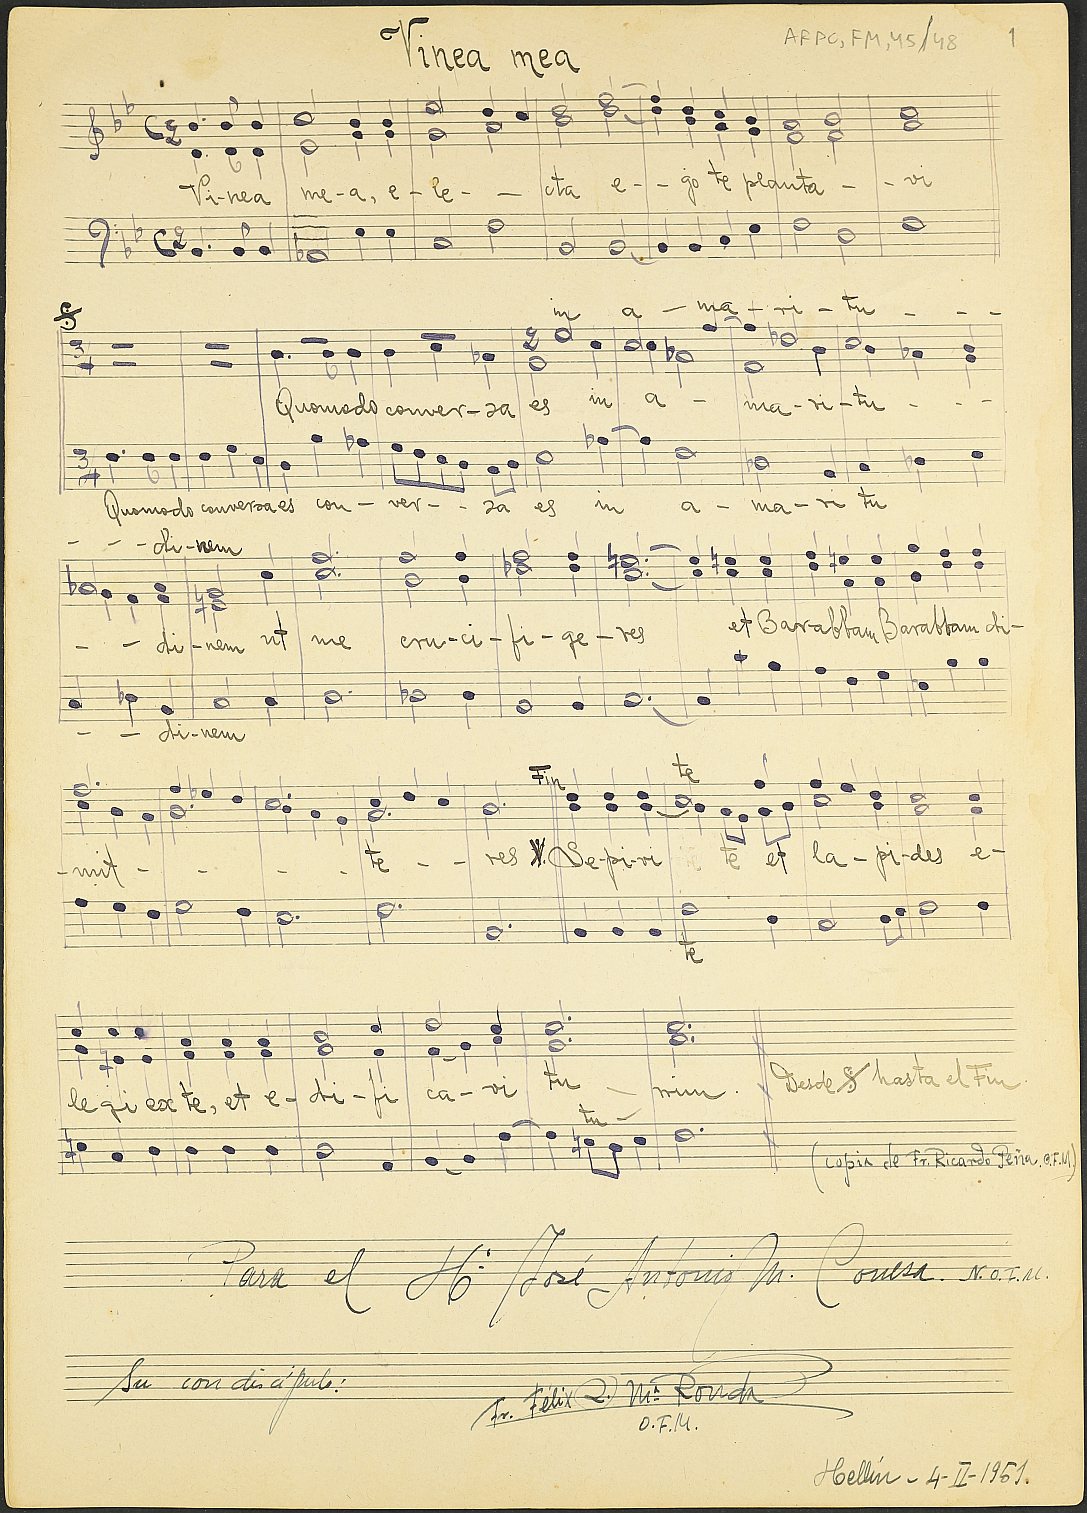 Vinea mea
AFPC, FM, 45/48 1
Vi-nea me-a, e-le- - cta e- - go te planta - - vi
in a - ma - ri - tu - - -
Quomodo conver-sa es in a - ma-ri-tu - - -
Quomodo conversa es con - ver - - sa es in a - ma - ri tu
- - - di-nem
- - di-nem ut me cru-ci-fi-ge-res et Barabbam Barabbam di-
- - di-nem
Fin te
-mit - - - - te - - res V. Se-pi-vi te et la-pi-des e-
te
legi ex te, et e-di-fi ca-vi tu - rrim. Desde 𝄋 hasta el Fin.
tu -
(copia de Fr. Ricardo Peña, O.F.M.)
Para el Hº José Antonio M. Conesa. N.O.F.M.
Su condiscípulo:
Fr. Félix Q. Mª Ronda
O.F.M.
Hellín - 4-II-1951.